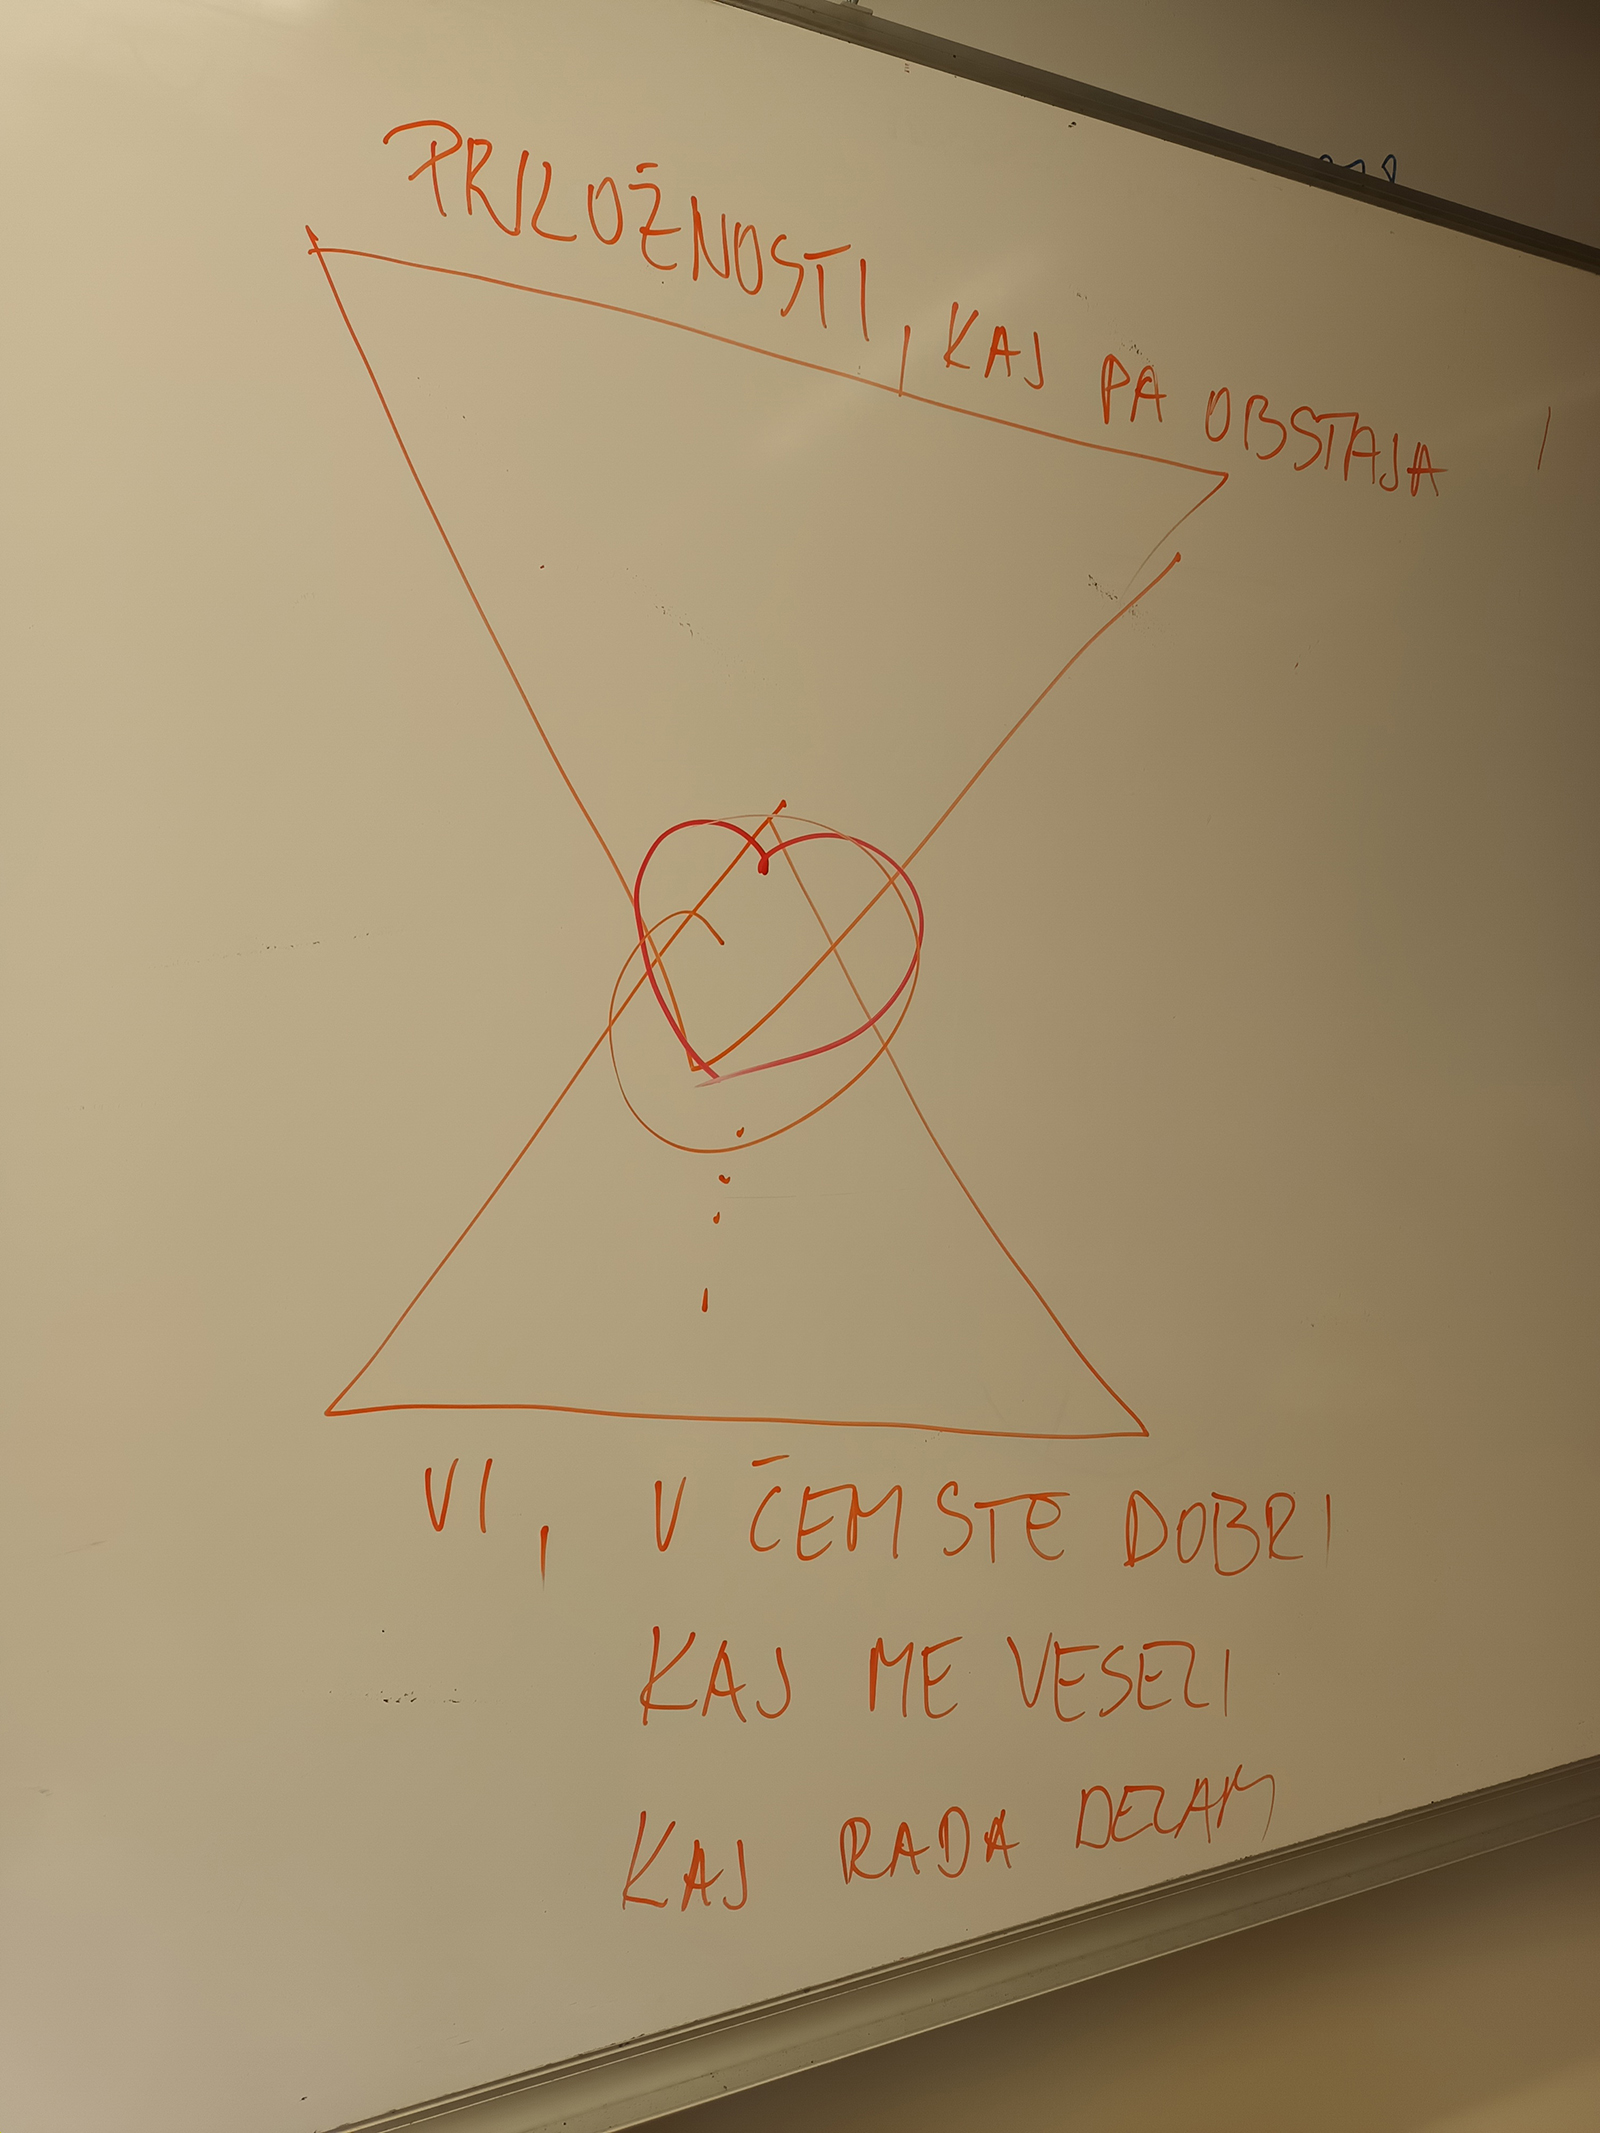 PRILOŽNOSTI, KAJ PA OBSTAJA
VI, V ČEM STE DOBRI
KAJ ME VESELI
KAJ RADA DELAM